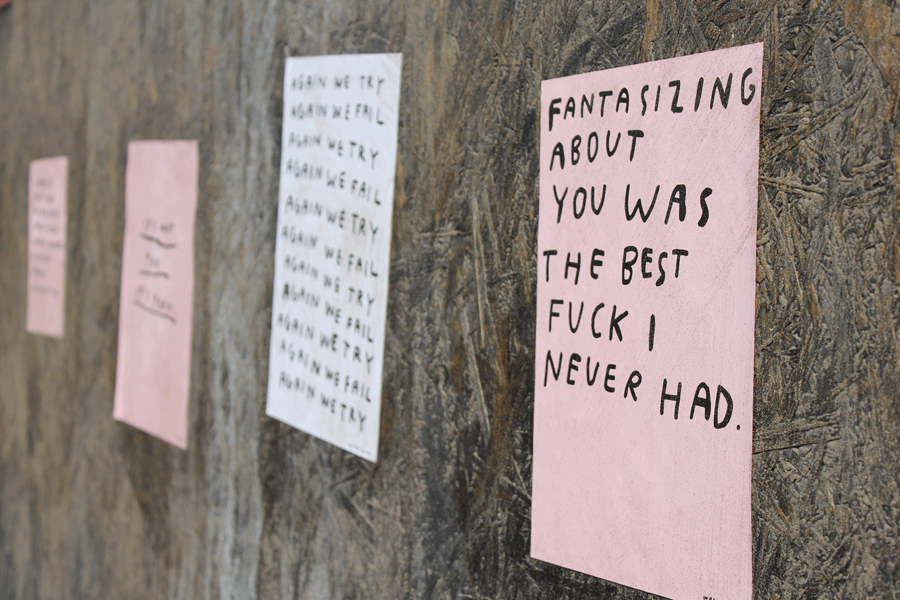 IT'S NOT
YOU
AGAIN WE TRY
AGAIN WE FAIL
AGAIN WE TRY
AGAIN WE FAIL
AGAIN WE TRY
AGAIN WE FAIL
AGAIN WE TRY
AGAIN WE FAIL
AGAIN WE TRY
AGAIN WE FAIL
AGAIN WE TRY
FANTASIZING
ABOUT
YOU WAS
THE BEST
FUCK I
NEVER HAD.